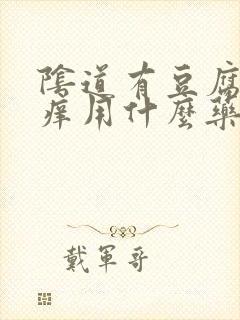 陰道有豆腐
痒用什麼藥
戴軍哥